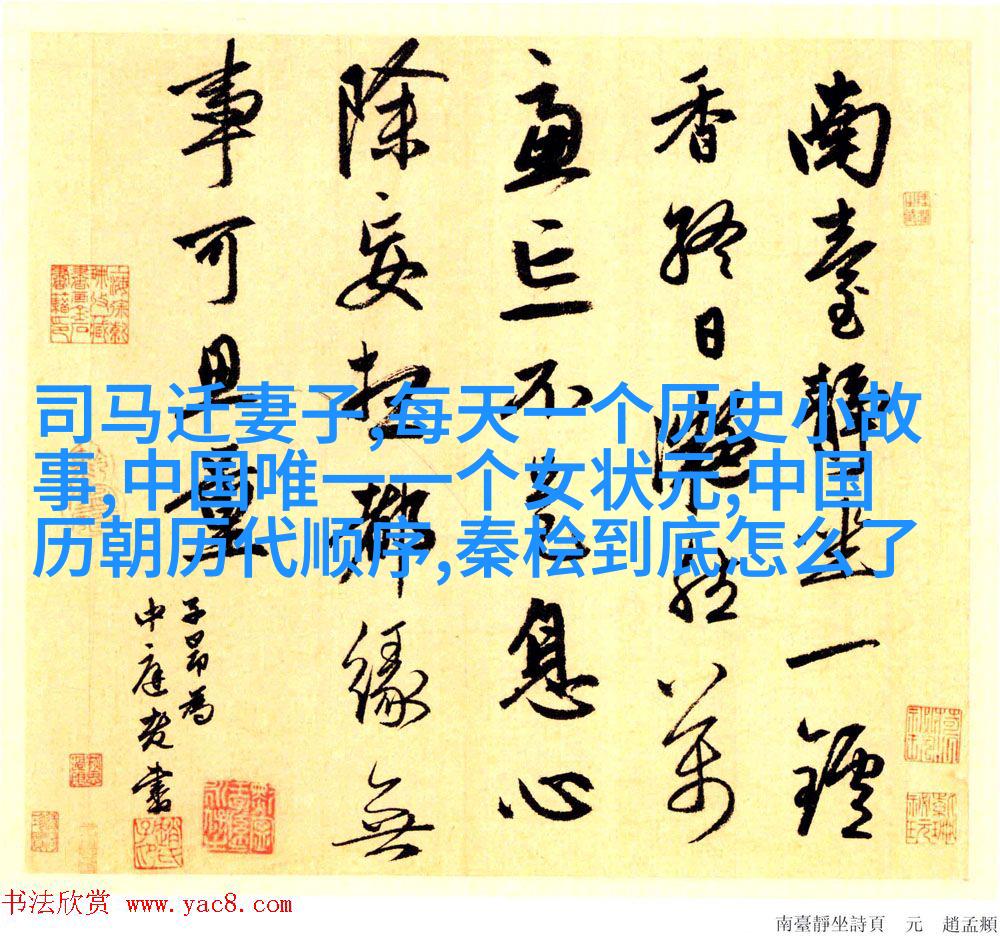 南臺靜坐一鑪
香終日凝然萬
慮亡不是息心
除妄想都緣無
事可思量
子昂為
中庭老書
司马迁妻子,每天一个历史小故
事,中国唯一一个女状元,中国
历朝历代顺序,秦桧到底怎么了
书法欣赏 www.yac8.com
南臺靜坐詩頁 元 趙孟頫